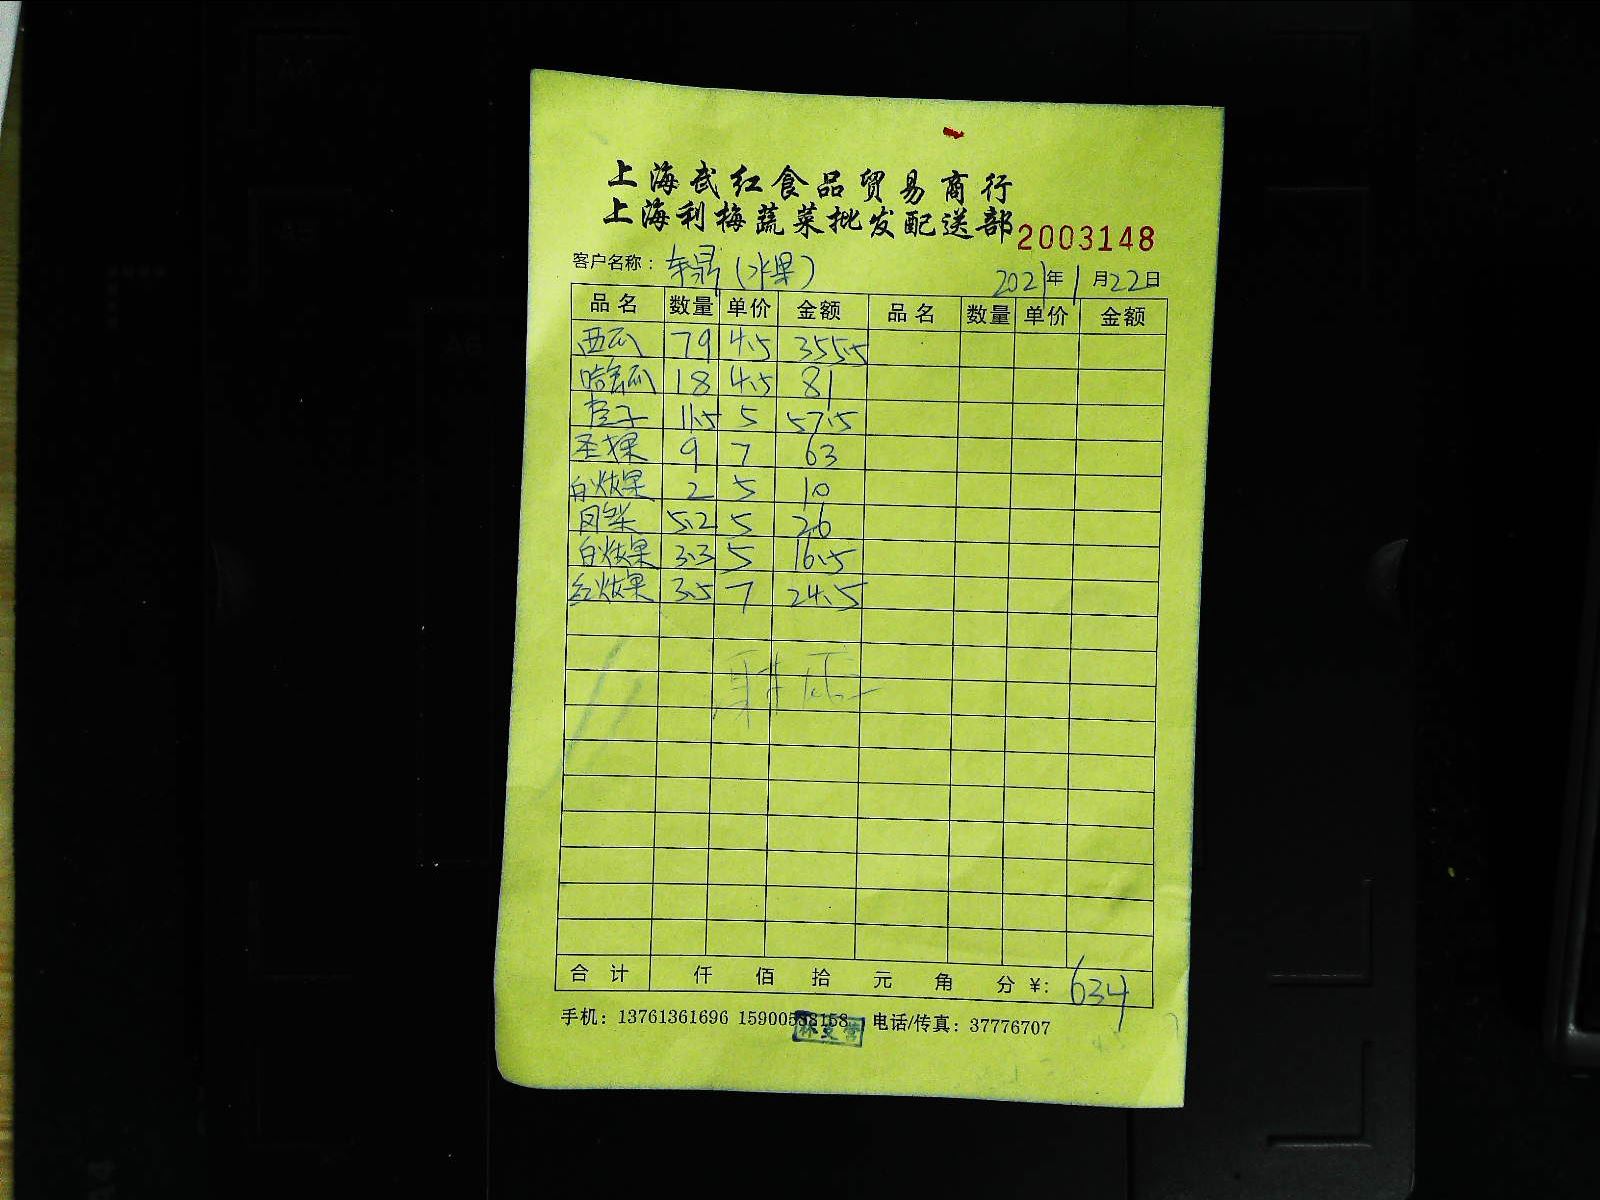 上海武红食品贸易商行
上海利梅蔬菜批发配送部 2003148
客户名称： 车鼎(水果) 2021年1月22日
品名 数量 单价 金额 品名 数量 单价 金额
西瓜 79 4.5 355.5
哈密瓜 18 4.5 81
11.5 5 57.5
圣果 9 7 63
白火龙果 2 5 10
凤梨 5.2 5 26
白火龙果 3.3 5 16.5
红火龙果 3.5 7 24.5
合计 仟 佰 拾 元 角 分 ¥: 634
手机：13761361696 15900588158 电话/传真：37776707